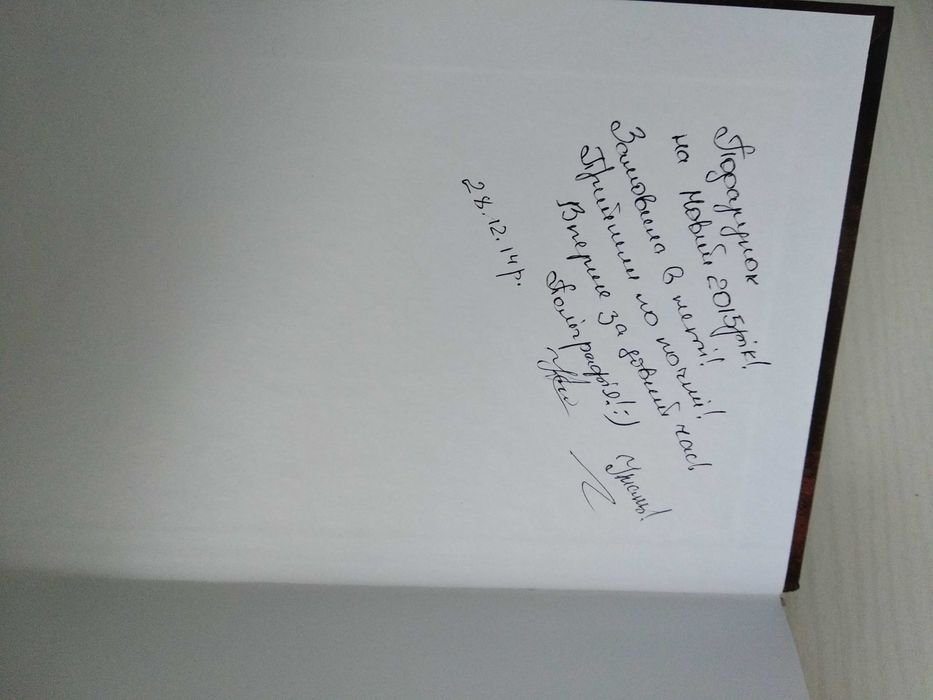 Подарунок
на Новий 2015 рік!
Замовила в неті!
Прийшли по почті!
Вперше за довгий час
Поліграфія! :) Умань!
28.12.14 р.